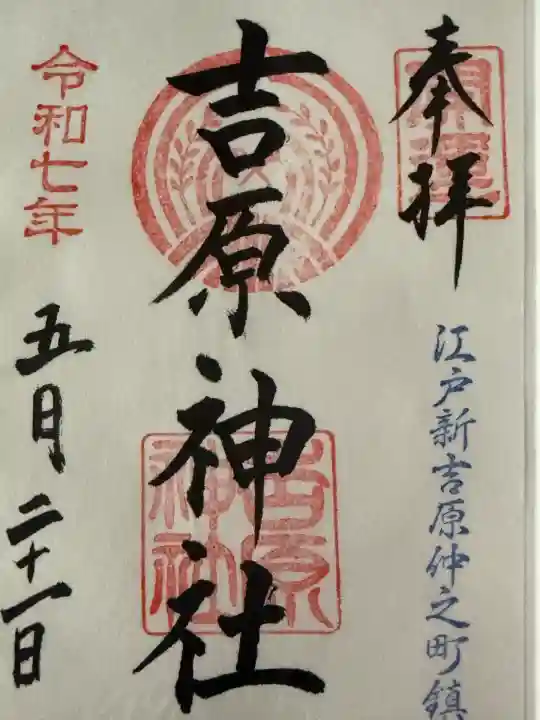 奉拝
開運
江戸新吉原仲之町鎮
吉原神社
吉原神社
令和七年
五月二十一日